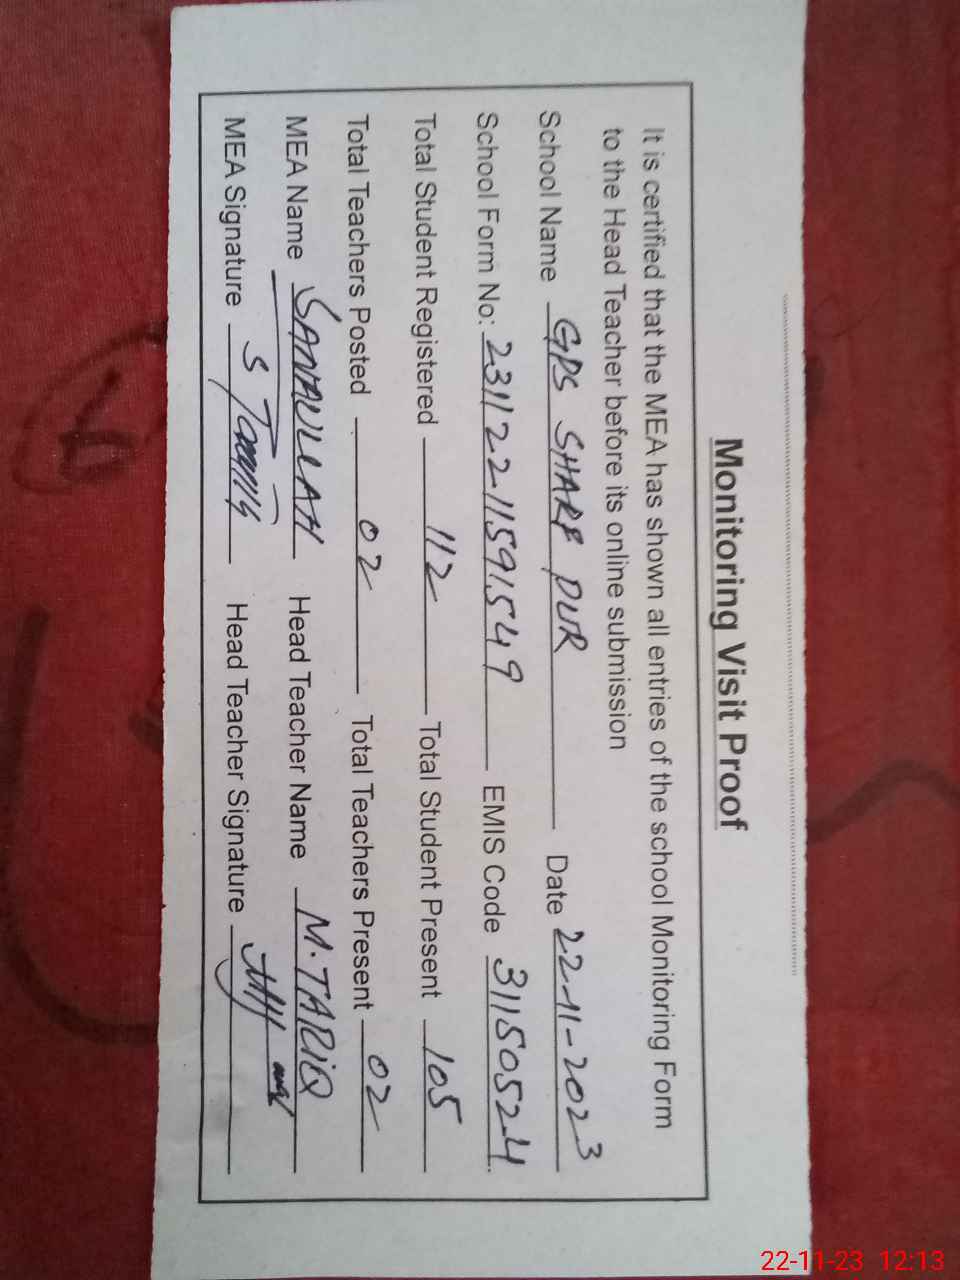 Monitoring Visit Proof
It is certified that the MEA has shown all entries of the school Monitoring Form
to the Head Teacher before its online submission
School Name GPS SHARF PUR Date 22-11-2023
School Form No: 23112211591549 EMIS Code 31150524
Total Student Registered 112 Total Student Present 105
Total Teachers Posted 02 Total Teachers Present 02
MEA Name SANAULLAH Head Teacher Name M. TARIQ
MEA Signature Head Teacher Signature
22-11-23 12:13